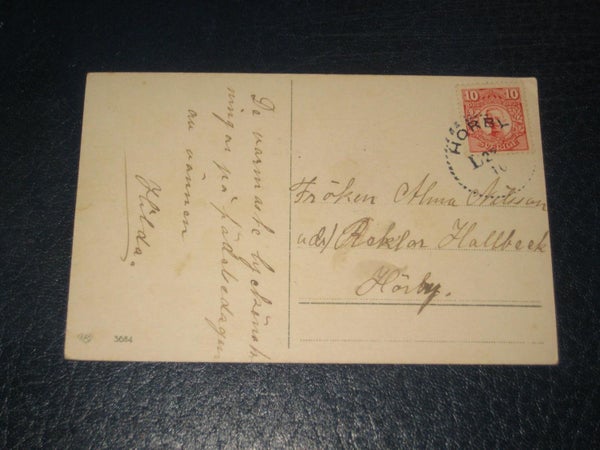 De varmaste lyckönsk
ningar på födelsedagen
av vännen
Hilda.
10 10
SVERIGE
HÖRBY
Fröken Alma Nilsson
adr/ Rektor Hallbeck
Hörby.
3684